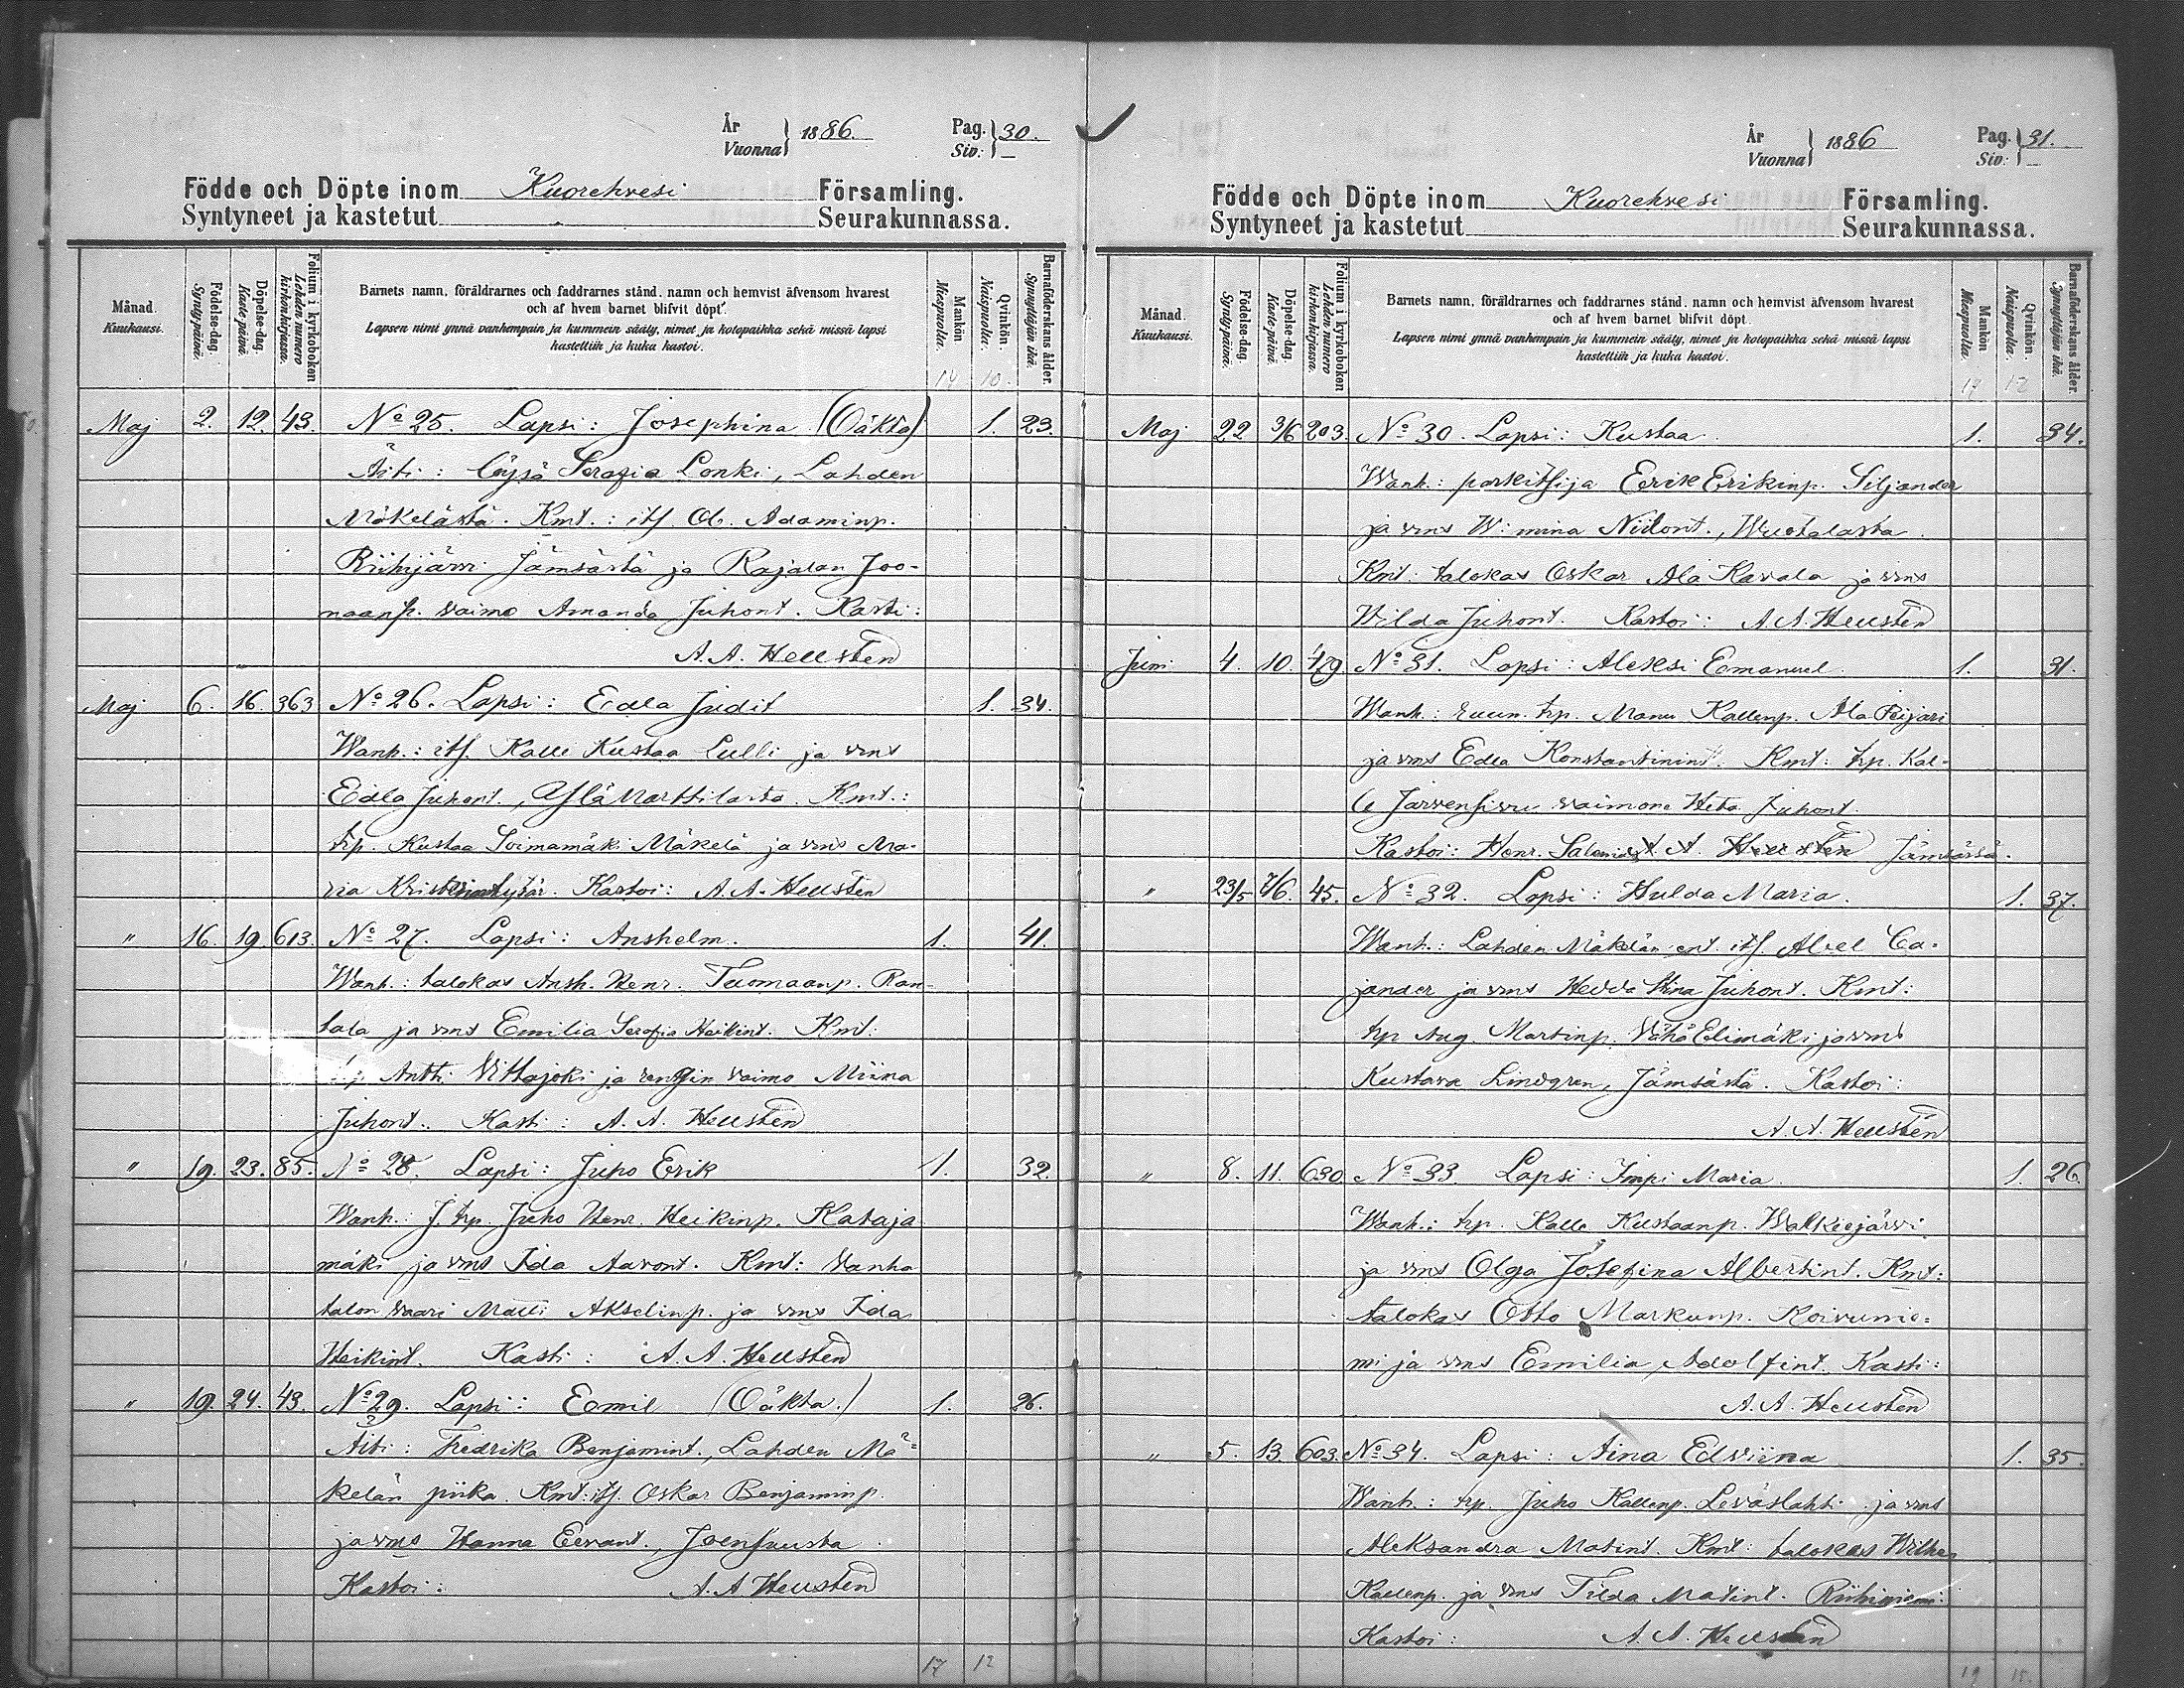 År
Vuonna } 1886.
Pag.
Siv: } 30.
Födde och Döpte inom Kuorehvesi Församling.
Syntyneet ja kastetut Seurakunnassa.
Månad.
Kuukausi.
Födelse-dag.
Synty-päivä.
Döpelse-dag.
Kaste-päivä.
Folium i kyrkoboken
Lehden numero
kirkonkirjassa.
Barnets namn, föräldrarnes och faddrarnes stånd, namn och hemvist äfvensom hvarest
och af hvem barnet blifvit döpt.
Lapsen nimi ynnä vanhempain ja kummein sääty, nimet ja kotopaikka sekä missä lapsi
kastettiin ja kuka kastoi.
Mankön
Miespuolia.
Qvinkön.
Naispuolia.
Barnaföderskans ålder.
Synnyttäjän ikä.
14 10.
Maj 2. 12. 43. No 25. Lapsi: Josephina (Oäkta) 1. 23.
Äiti: Löysä Serafia Lonki, Lahden
Mäkelästä. Kmt.: its. Ob. Adaminp.
Riihijärvi Jämsästä ja Rajalan Joo-
naanp. vaimo Amanda Juhont. Kasti:
A. A. Hellsten
Maj 6. 16. 363 No 26. Lapsi: Edla Judit 1. 34.
Wanh.: its. Kalle Kustaa Lulli ja vms
Edla Juhont., Ylä Marttilasta. Kmt.:
trp. Kustaa Soimamäki Mäkelä ja vms Ma-
ria tytär. Kastoi: A. A. Hellsten
" 16. 19. 613. No 27. Lapsi: Anshelm. 1. 41.
Wanh.: talokas Anth. Henr. Tuomaanp. Ran-
tala ja vms Emilia Serafia Heikint. Kmt:
Antti Vittajoki ja rengin vaimo Miina
Juhont. Kasti: A. A. Hellsten
" 19. 23. 85. No 28. Lapsi: Juho Erik 1. 32.
Wanh.: J. trp. Juho Henr. Heikinp. Kataja
mäki ja vms Ida Aaront. Kmt: Vanha
talon vaari Matti Akselinp. ja vms Ida
Heikint. Kasti: A. A. Hellsten
" 19. 24. 43. No 29. Lapsi: Eemil (Oäkta.) 1. 26.
Äiti: Fredrika Benjamint., Lahden Mä-
kelän piika. Kmt: its. Oskar Benjaminp.
ja vms Hanna Eevant., Joensuusta
Kastoi: A. A Hellsten
17 12
År
Vuonna } 1886
Pag.
Siv: } 31.
Födde och Döpte inom Kuorehvesi Församling.
Syntyneet ja kastetut Seurakunnassa.
Månad.
Kuukausi.
Födelse-dag.
Synty-päivä.
Döpelse-dag.
Kaste-päivä.
Folium i kyrkoboken
Lehden numero
kirkonkirjassa.
Barnets namn, föräldrarnes och faddrarnes stånd, namn och hemvist äfvensom hvarest
och af hvem barnet blifvit döpt.
Lapsen nimi ynnä vanhempain ja kummein sääty, nimet ja kotopaikka sekä missä lapsi
kastettiin ja kuka kastoi.
Mankön
Miespuolia.
Qvinkön.
Naispuolia.
Barnaföderskans ålder.
Synnyttäjän ikä.
17 12
Maj 22 3/6 203. No 30. Lapsi: Kustaa. 1. 34.
Wanh.: parkitsija Eerik Erikinp. Siljander
ja vms W:mina Niilont., Wuotalasta.
Kmt: talokas Oskar Ala Kavala ja vms
Hilda Juhont. Kastoi: A. A. Hellsten
Juni 4. 10. 429 No 31. Lapsi: Aleksi Eemanuel 1. 31.
Wanh.: ruun. trp. Manu Kallenp. Ala Peijari
ja vms Edla Konstantinint. Kmt: trp. Kal-
le Jarvensivu vaimone Heta Juhont.
Kastoi: Henr. Salenius A. A. Hellsten Jämsässä.
" 23/5 7/6. 45. No 32. Lapsi: Hulda Maria. 1. 37.
Wanh.: Lahden Mäkelän ent. its. Abel Ca-
jander ja vms Hedda Stina Juhont. Kmt:
trp Aug. Martinp. Vähä Elimäki ja vms
Kustava Lindgren, Jämsästä. Kastoi:
A. A. Hellsten
" 8. 11. 630. No 33. Lapsi: Impi Maria. 1. 26
Wanh.: trp. Kalle Kustaanp. Walkiejärvi
ja vms Olga Josefina Albertint. Kmt:
talokas Otto Markunp. Koivunie-
mi ja vms Emilia Adolfint. Kasti:
A. A. Hellsten
" 5. 13. 603. No 34. Lapsi: Aina Edviina 1. 35.
Wanh.: trp. Juho Kallenp. Leväslahti ja vms
Aleksandra Matint. Kmt: talokas Wilhe
Kallenp. ja vms Tilda Matint. Riihiniemi.
Kastoi: A. A. Hellsten
19 15.